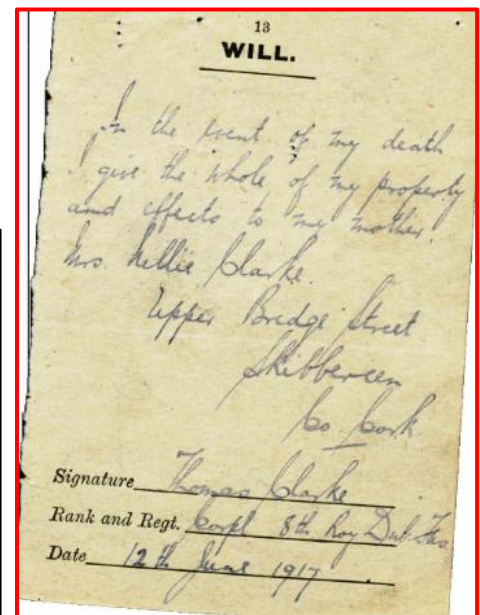 13
WILL.
In the event of my death
I give the whole of my property
and effects to my mother.
Mrs. Nellie Clarke.
Upper Bridge Street
Skibbereen
Co. Cork
Signature Thomas Clarke
Rank and Regt. Corpl 8th Roy Dub. Fus
Date 12th June 1917